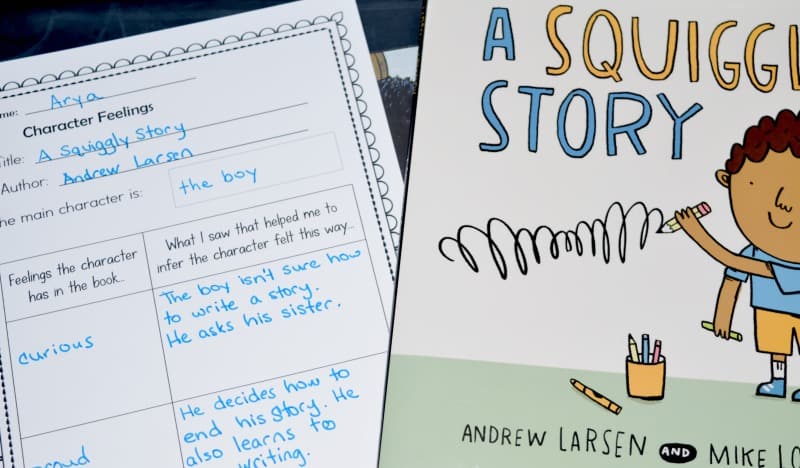 Arya
Character Feelings
A Squiggly Story
Author: Andrew Larsen
main character is:
the boy
Feelings the character
has in the book...
What I saw that helped me to
infer the character felt this way...
curious
The boy isn't sure how
to write a story.
He asks his sister.
He decides how to
end his story. He
also learns to
writing.
A
STORY
ANDREW LARSEN AND MIKE